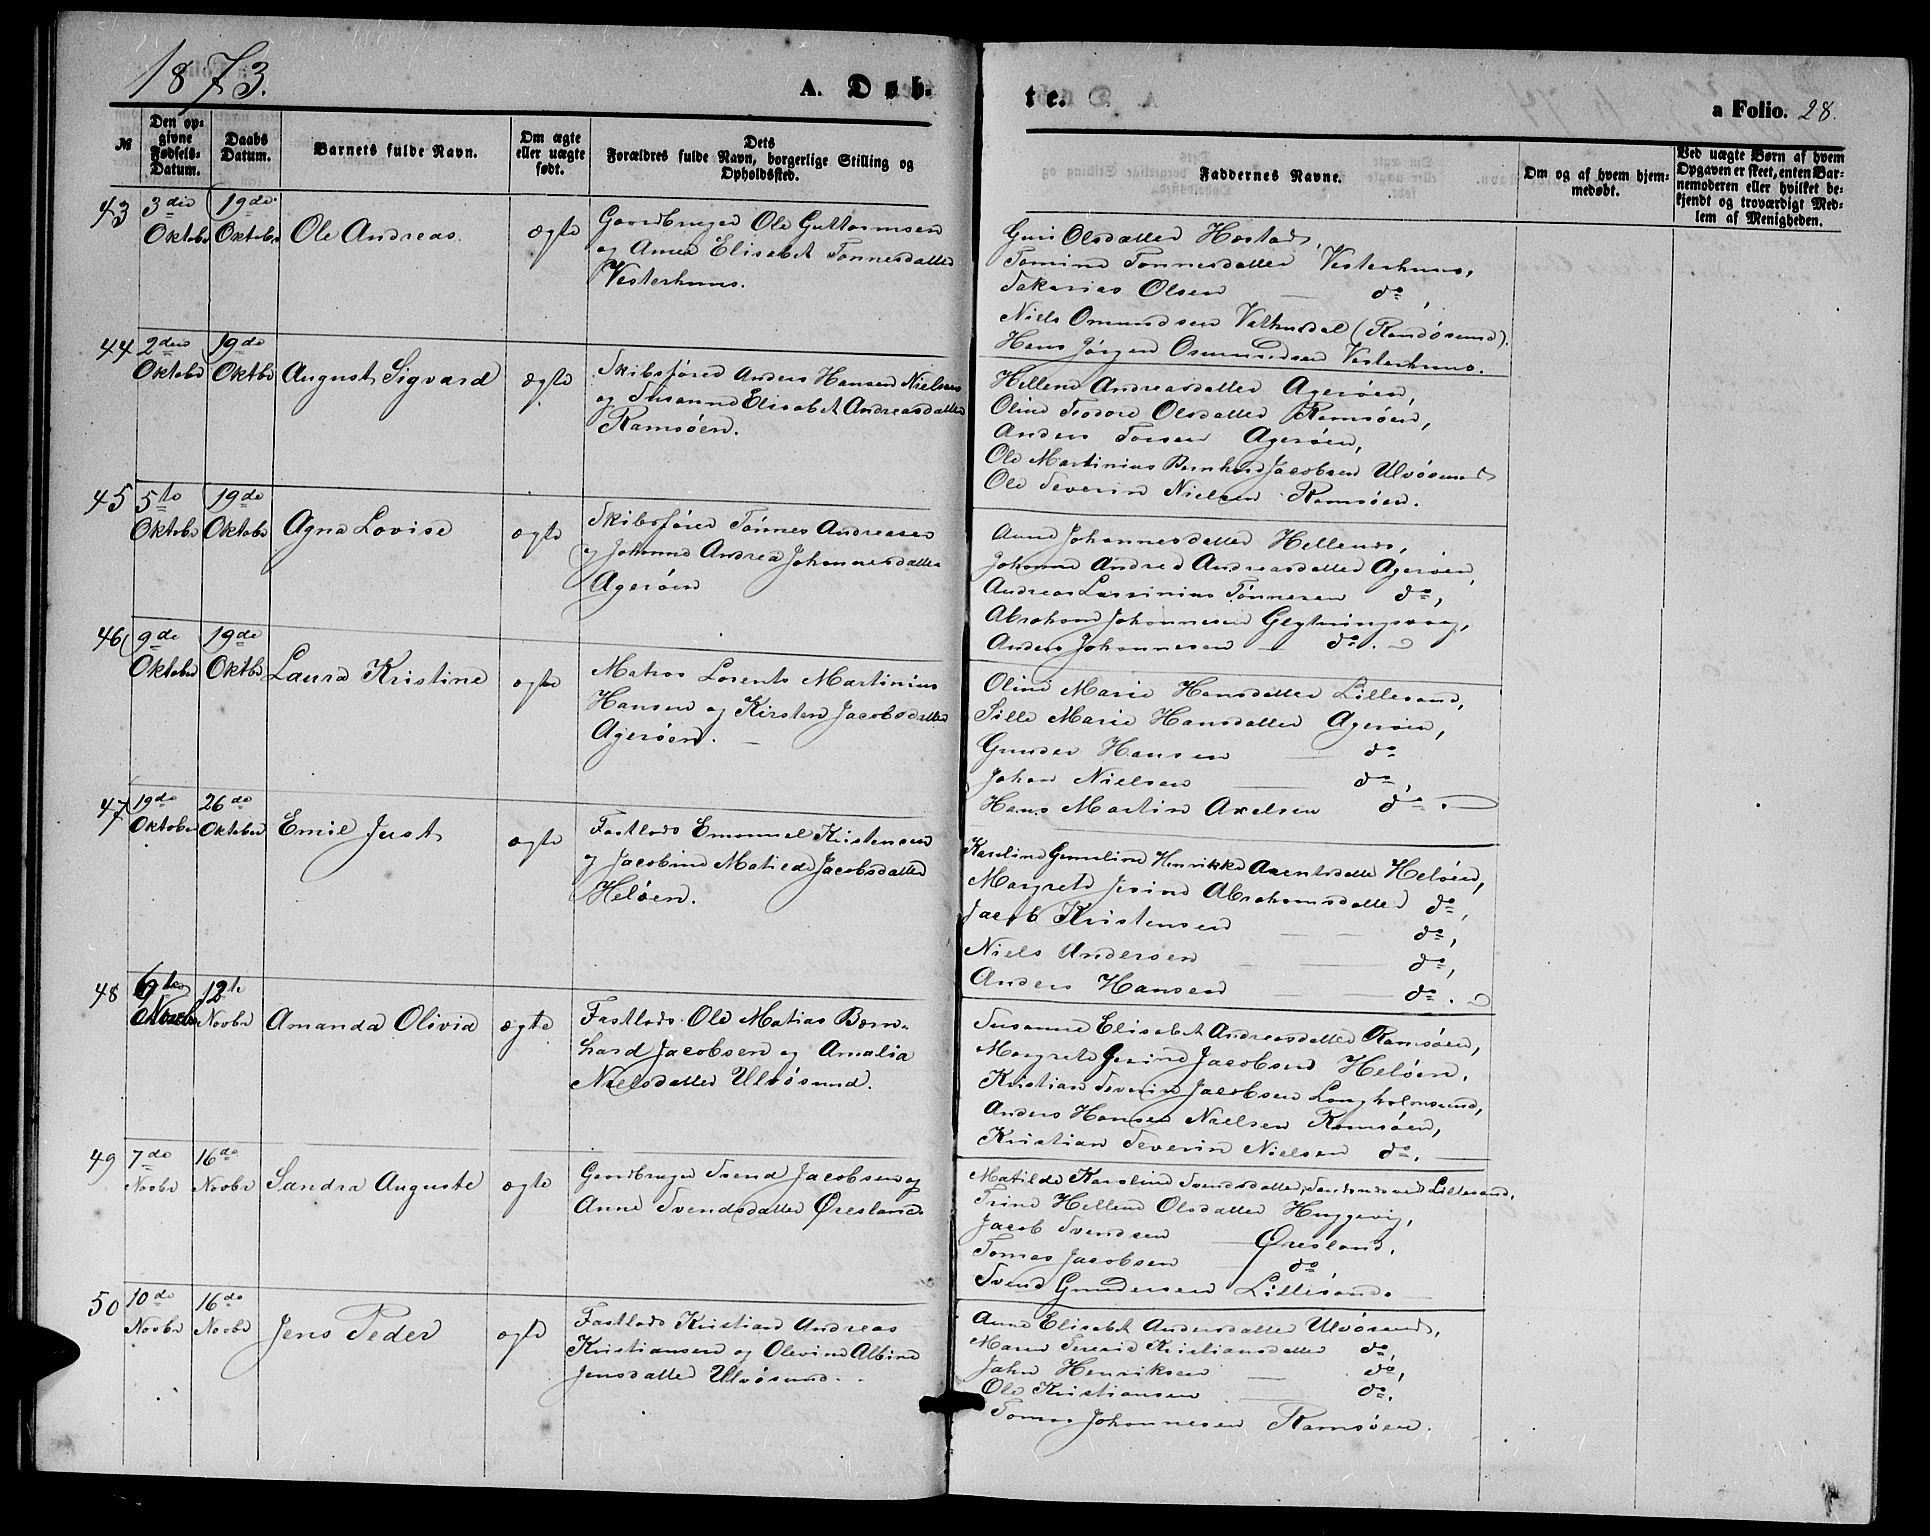 1873.
A. Døb-
te.
a Folio. 28.
№
Den op-
givne
Fødsels-
Datum.
Daabs
Datum.
Barnets fulde Navn.
Om ægte
eller uægte
født.
Dets
Forældres fulde Navn, borgerlige Stilling og
Opholdssted.
Faddernes Navne.
Om og af hvem hjem-
medøbt.
Ved uægte Børn af hvem
Opgaven er skeet, enten Bar-
nemoderen eller hvilket be-
kjendt og troværdigt Med-
lem af Menigheden.
43
3die
Oktobr
19de
Oktobr
Ole Andreas.
ægte
Gaardbruger Ole Guttormsen
og Anne Elisabet Tønnesdatter
Vesterhuus.
Guri Olsdatter Hæstad,
Tomine Tønnesdatter Vesterhuus,
Sakarias Olsen do,
Niels Omundsen Vatnedal (Randøsund).
Hans Jørgen Osmundsen Vesterhuus.
44
2den
Oktobr
19de
Oktbr
August Sigvard
ægte
Skibsfører Anders Hansen Nielsen
og Susanne Elisabet Andreasdatter
Ramsøen.
Hellene Andreasdatter Agerøen,
Oline Teodore Olsdatter Ramsøen,
Anders Agerøen,
Ole Martinius Bernhard Jacobsen Ulvøsund
Ole Severin Nielsen Ramsøen.
45
5te
Oktobr
19de
Oktobr
Agna Lovise
ægte
Skibsfører Tønnes Andreasen
og Johanne Andrea Johannesdatter
Agerøen
Anne Johannesdatter Hellenes,
Johanne Andrea Andreasdatter Agerøen,
Andreas Tønnesen do,
Abraham Johannesen
Anders Johannesen do.
46
9de
Oktobr
19de
Oktbr
Laura Kristine
ægte
Matros Lorents Martinius
Hansen og Kirsten Jacobsdatter
Agerøen.
Oline Marie Hansdatter Lillesand,
Sille Marie Hansdatter Agerøen,
Gunder Hansen do
Johan Nielsen do,
Hans Martin Axelsen do.
47
19de
Oktobr
26de
Oktober
Emil Just
ægte
Fastlods Emanuel Kristensen
og Jacobine Matilde Jacobsdatter
Heløen.
Karoline Gemaline Henrikke Arentsdatter Heløen,
Margrete Jesine Abrahamsdatter do,
Jacob Kristensen do,
Niels Andersen do,
Anders Hansen do.
48
6te
Novbr
12te
Novbr
Amanda Olivia
ægte
Fastlods Ole Matias Bern-
hard Jacobsen og Amalia
Nielsdatter Ulvøsund.
Susanne Elisabet Andreasdatter Ramsøen,
Margrete Jesine Jacobsen Heløen,
Kristian Severin Jacobsen Langholmsund,
Anders Hansen Nielsen Ramsøen,
Kristian Severin Nielsen do.
49
7de
Novbr
16de
Novbr
Sandra Auguste
ægte
Gaardbruger Svend Jacobsen og
Anne Svendsdatter Øresland.
Matilde Karoline Svendsdatter, ved Lillesand,
Trine Hellene Olsdatter Huggevig,
Jacob Svendsen Øresland,
Tomas Jacobsen do,
Svend Gundersen Lillesand.
50
10de
Novbr
16de
Novbr
Jens Peder
ægte
Fastlods Kristian Andreas
Kristiansen og Olevine Albine
Jensdatter Ulvøsund.
Anne Elisabet Andersdatter Ulvøsund,
Maren Teresie Kristiansdatter do,
Jahn Henriksen do,
Ole Kristiansen do.
Tomas Johannesen Ramsøen.